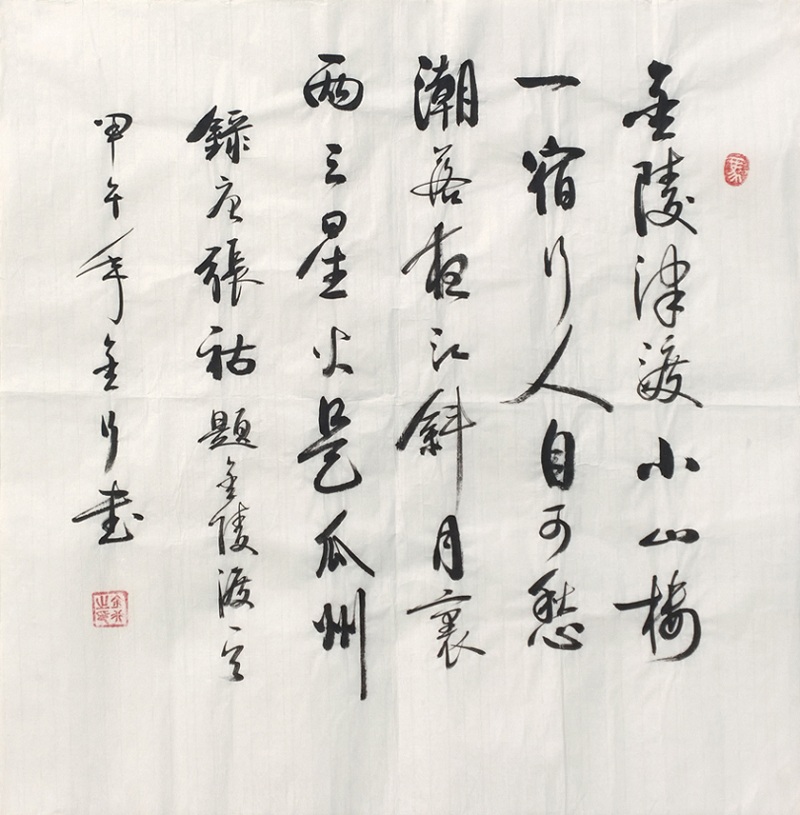 金陵津渡小山樓
一宿行人自可愁
潮落夜江斜月裏
兩三星火是瓜州
錄唐張祜題金陵渡一首
甲午年金行書